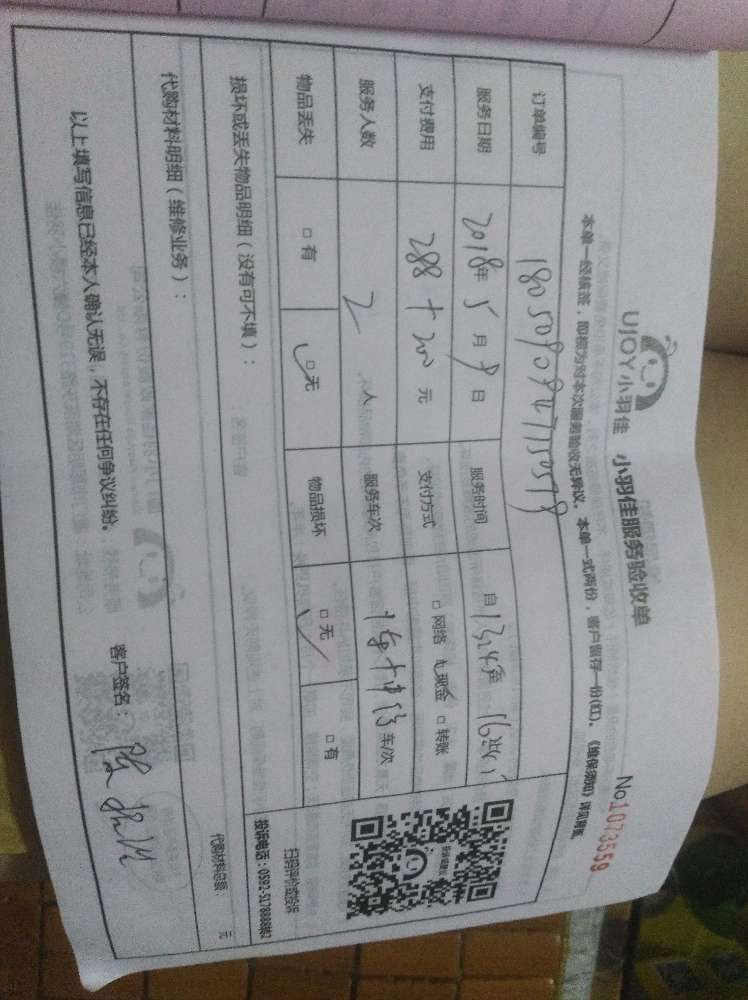 UJOY小羽佳 小羽佳服务验收单 No1073559
本单一经核签，即视为对本次服务验收无异议。本单一式两份，客户留存一份(红)。《维保须知》详见背纸
订单编号
服务日期 2018年5月9日 服务时间 自1324至
支付费用 288+200元 支付方式 □网络 现金 □转账
服务人数 2人 服务车次 车/次
物品丢失 □有 □无 物品损坏 □无 □有
扫码评价或投诉
投诉电话：0592-5178888转2
损坏或丢失物品明细（没有可不填）：
代购材料明细（维修业务）： 代购材料总额： 元
以上填写信息已经本人确认无误，不存在任何争议纠纷。 客户签名：